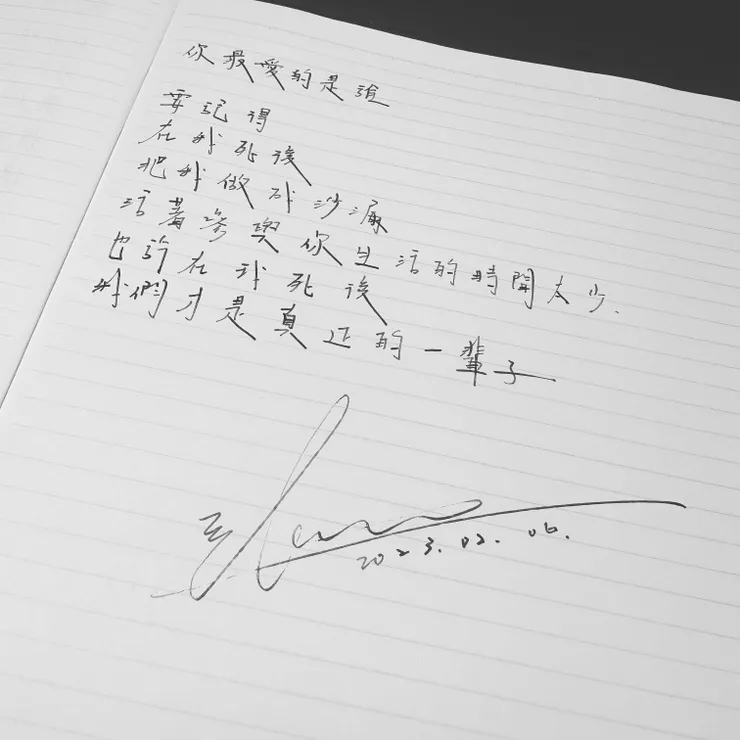 你最愛的是誰
要記得
在我死後
把我做成沙漏
活著參與你生活的時間太少.
也許在我死後
我們才是真正的一輩子
2023.02.06.